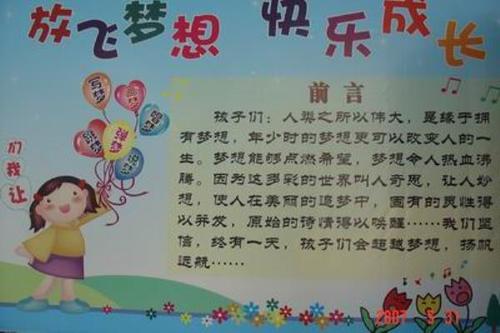 放飞梦想 快乐成长
写梦
弹梦
说梦
们
我
让
前言
孩子们：人类之所以伟大，是缘于拥
有梦想，年少时的梦想更可以改变人的一
生。梦想能够点燃希望，梦想令人热血沸
腾。因为这多彩的世界叫人奇思，让人妙
想，使人在美丽的追梦中，固有的灵性得
以并发，原始的诗情得以唤醒……我们坚
信，终有一天，孩子们会超越梦想，扬帆
远航……
2007 5 31